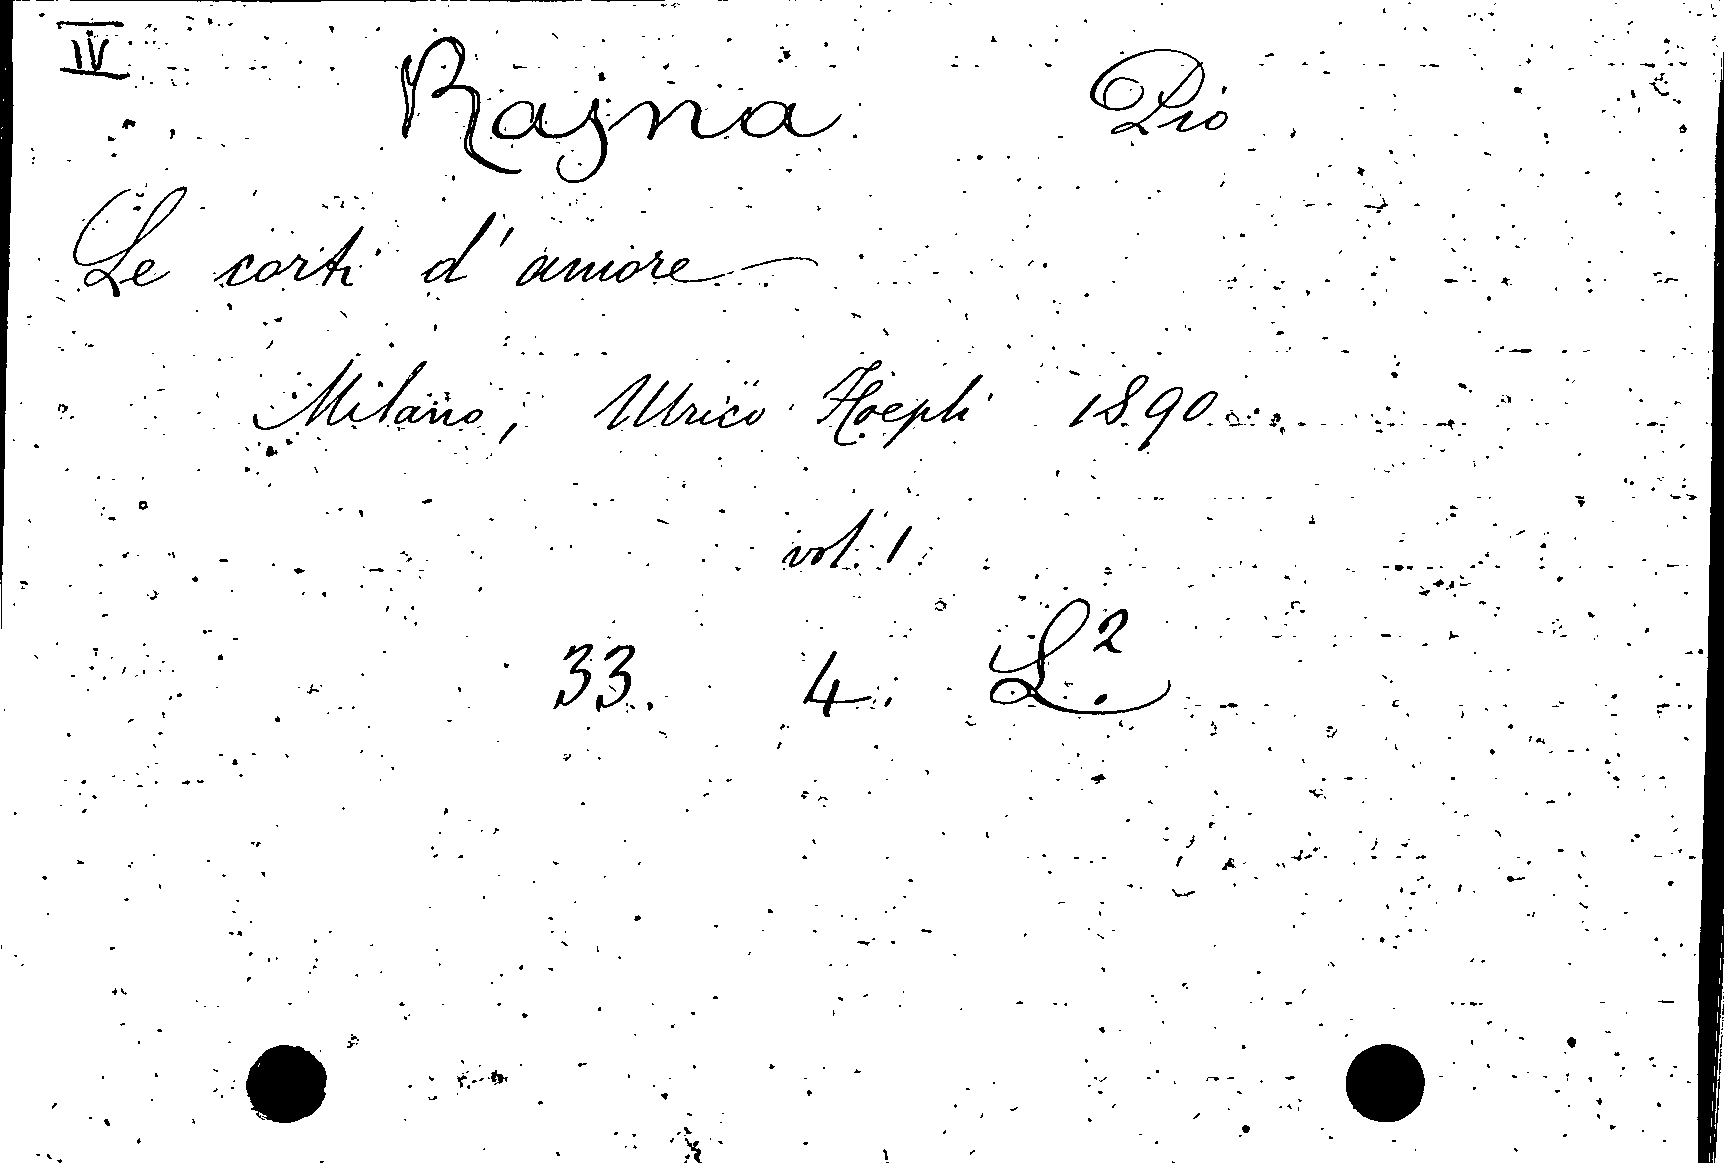 IV
Rajna Pio
Le corti d'amore
Milano, Ulrico Hoepli 1890
vol. 1
33. 4. L.²